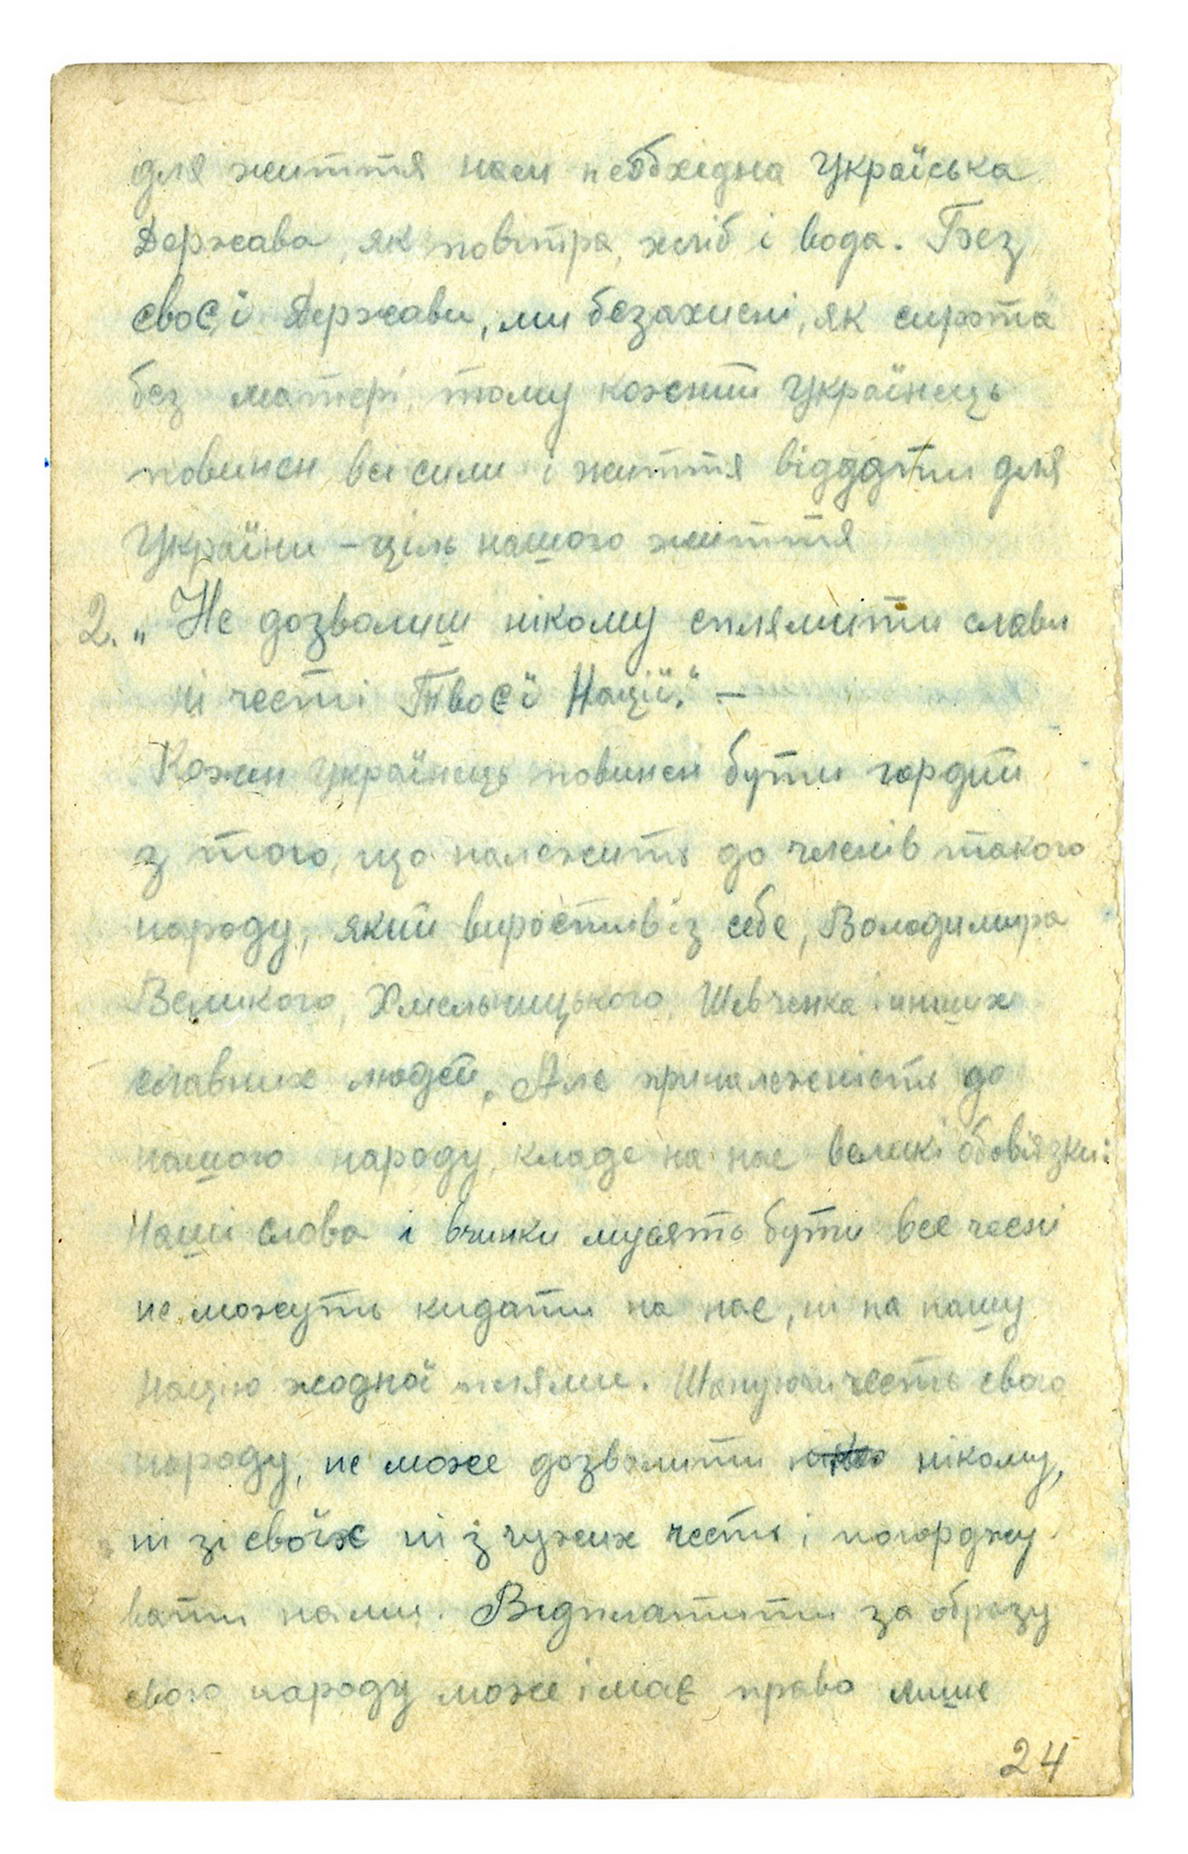 для життя нам необхідна Україська
Держава, як повітря, хліб і вода. Без
своєї Держави, ми безахисні, як сирота
без матері, тому кожений Українець
повинен всі сили і життя віддати для
України – ціль нашого життя
2. „Не дозволиш нікому сплямити слави
ні честі Твоєї Нації." –
Кожен Українець повинен бути гордий
з того, що належить до членів такого
народу, який виростив із себе, Володимира
Великого, Хмельницького, Шевченка і инших
славних людей. Але приналежність до
нашого народу, кладе на нас великі обовязки:
Наші слова і вчинки мусять бути все чесні
не можуть кидати на нас, ні на нашу
Націю жодної плями. Шануючи честь свого
народу, не може дозволити нікому,
ні зі своїх ні з чужих честь і погорджу
вати нами. Відплатити за образу
свого народу може і має право лише
24